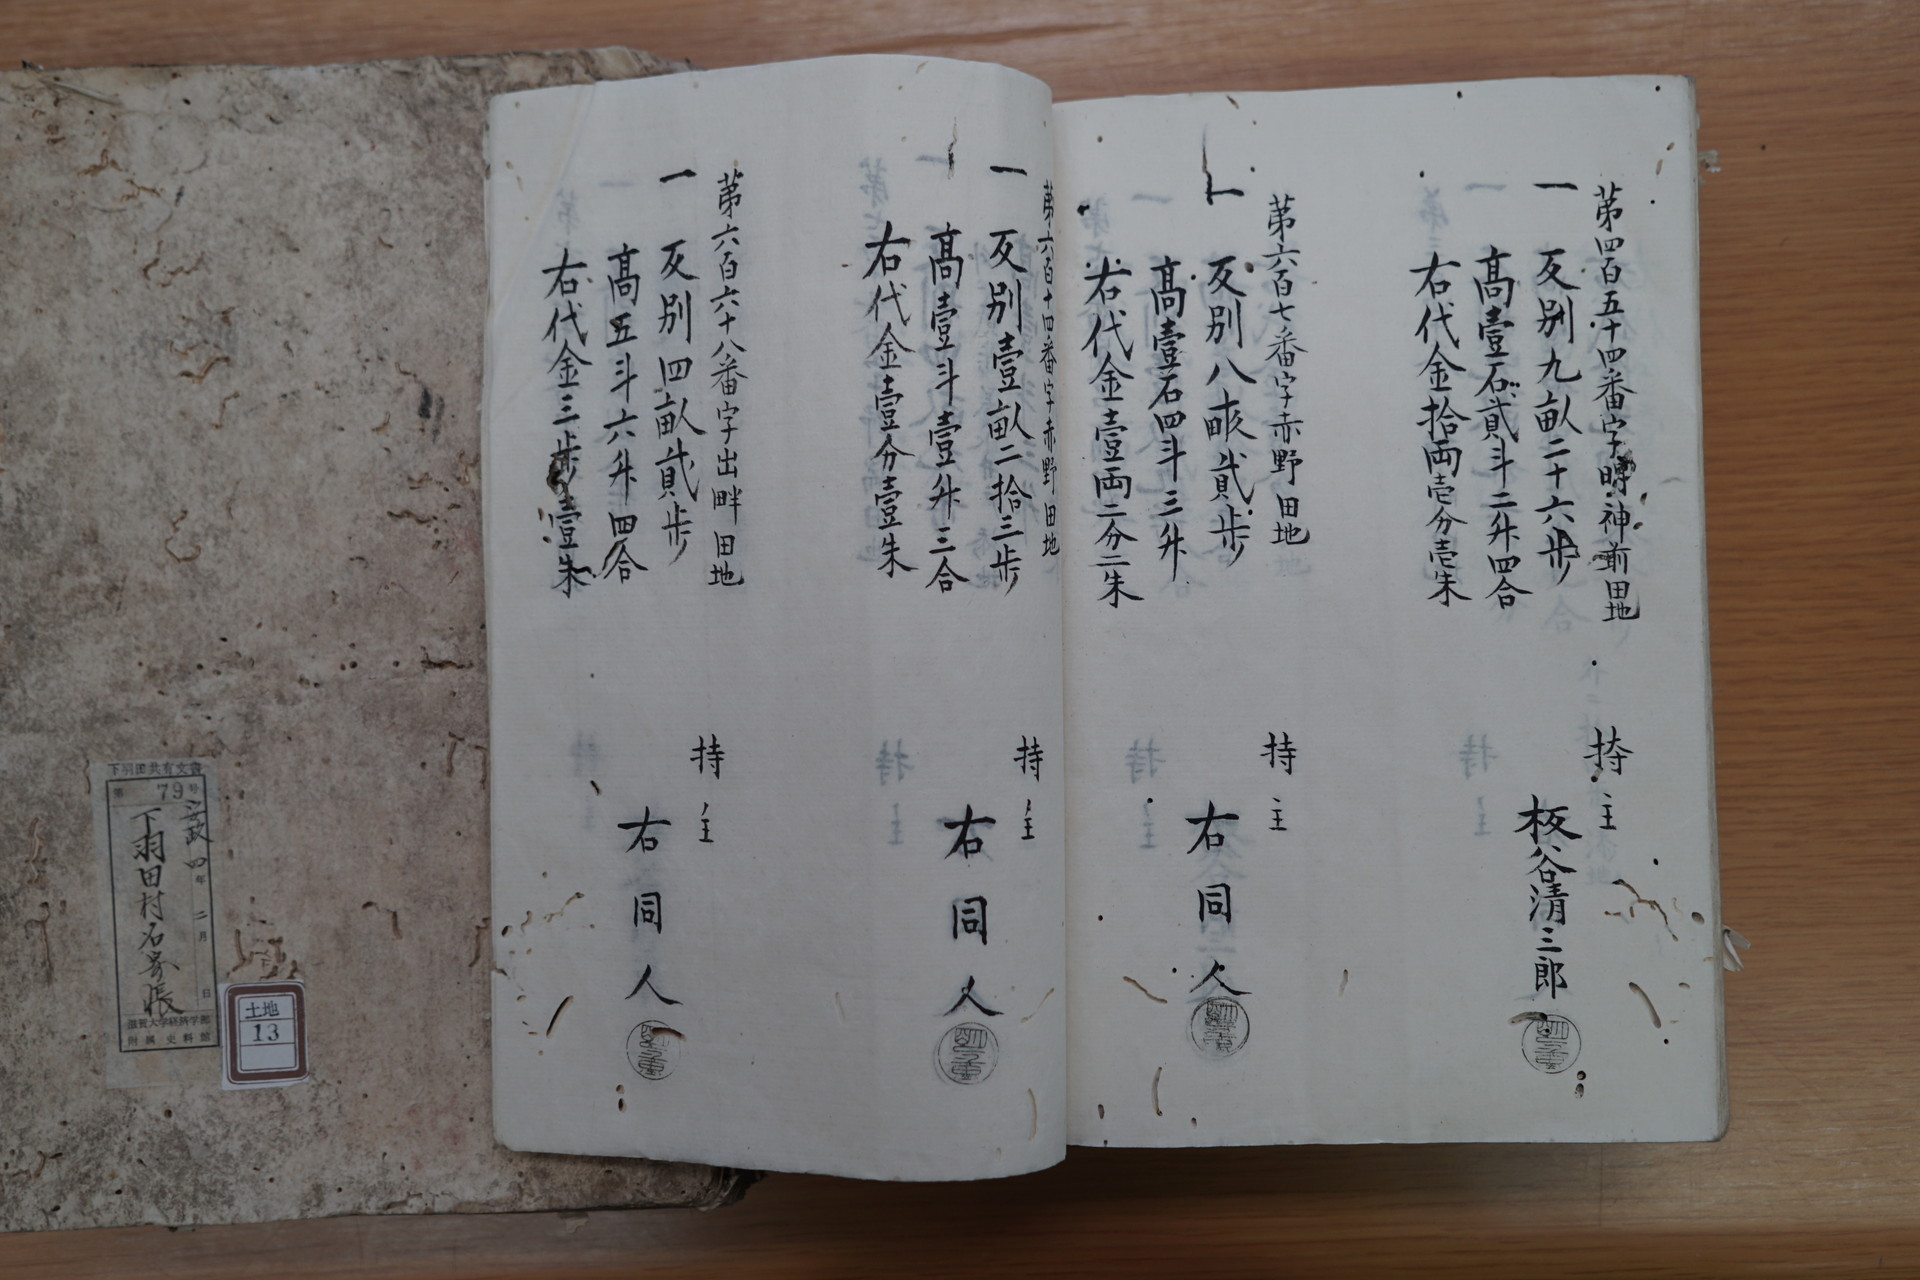 第四百五十四番字時神前田地
一 反別九畝二十六歩
高壹石貳斗二升四合
右代金拾両壱分壱朱
持主
板谷清三郎
第六百七番字赤野田地
一 反別八畝貳歩
高壹石四斗三升
右代金壹両二分二朱
持主
右同人
第六百十四番字赤野田地
一 反別壹畝二拾三歩
高壹斗壹升三合
右代金壹分壹朱
持主
右同人
第六百六十八番字出畔田地
一 反別四畝貳歩
高五斗六升四合
右代金三歩壹朱
持主
右同人
下羽田共有文書
第79号
安政四年二月 日
下羽田村名寄帳
滋賀大学経済学部
附属史料館
土地
13